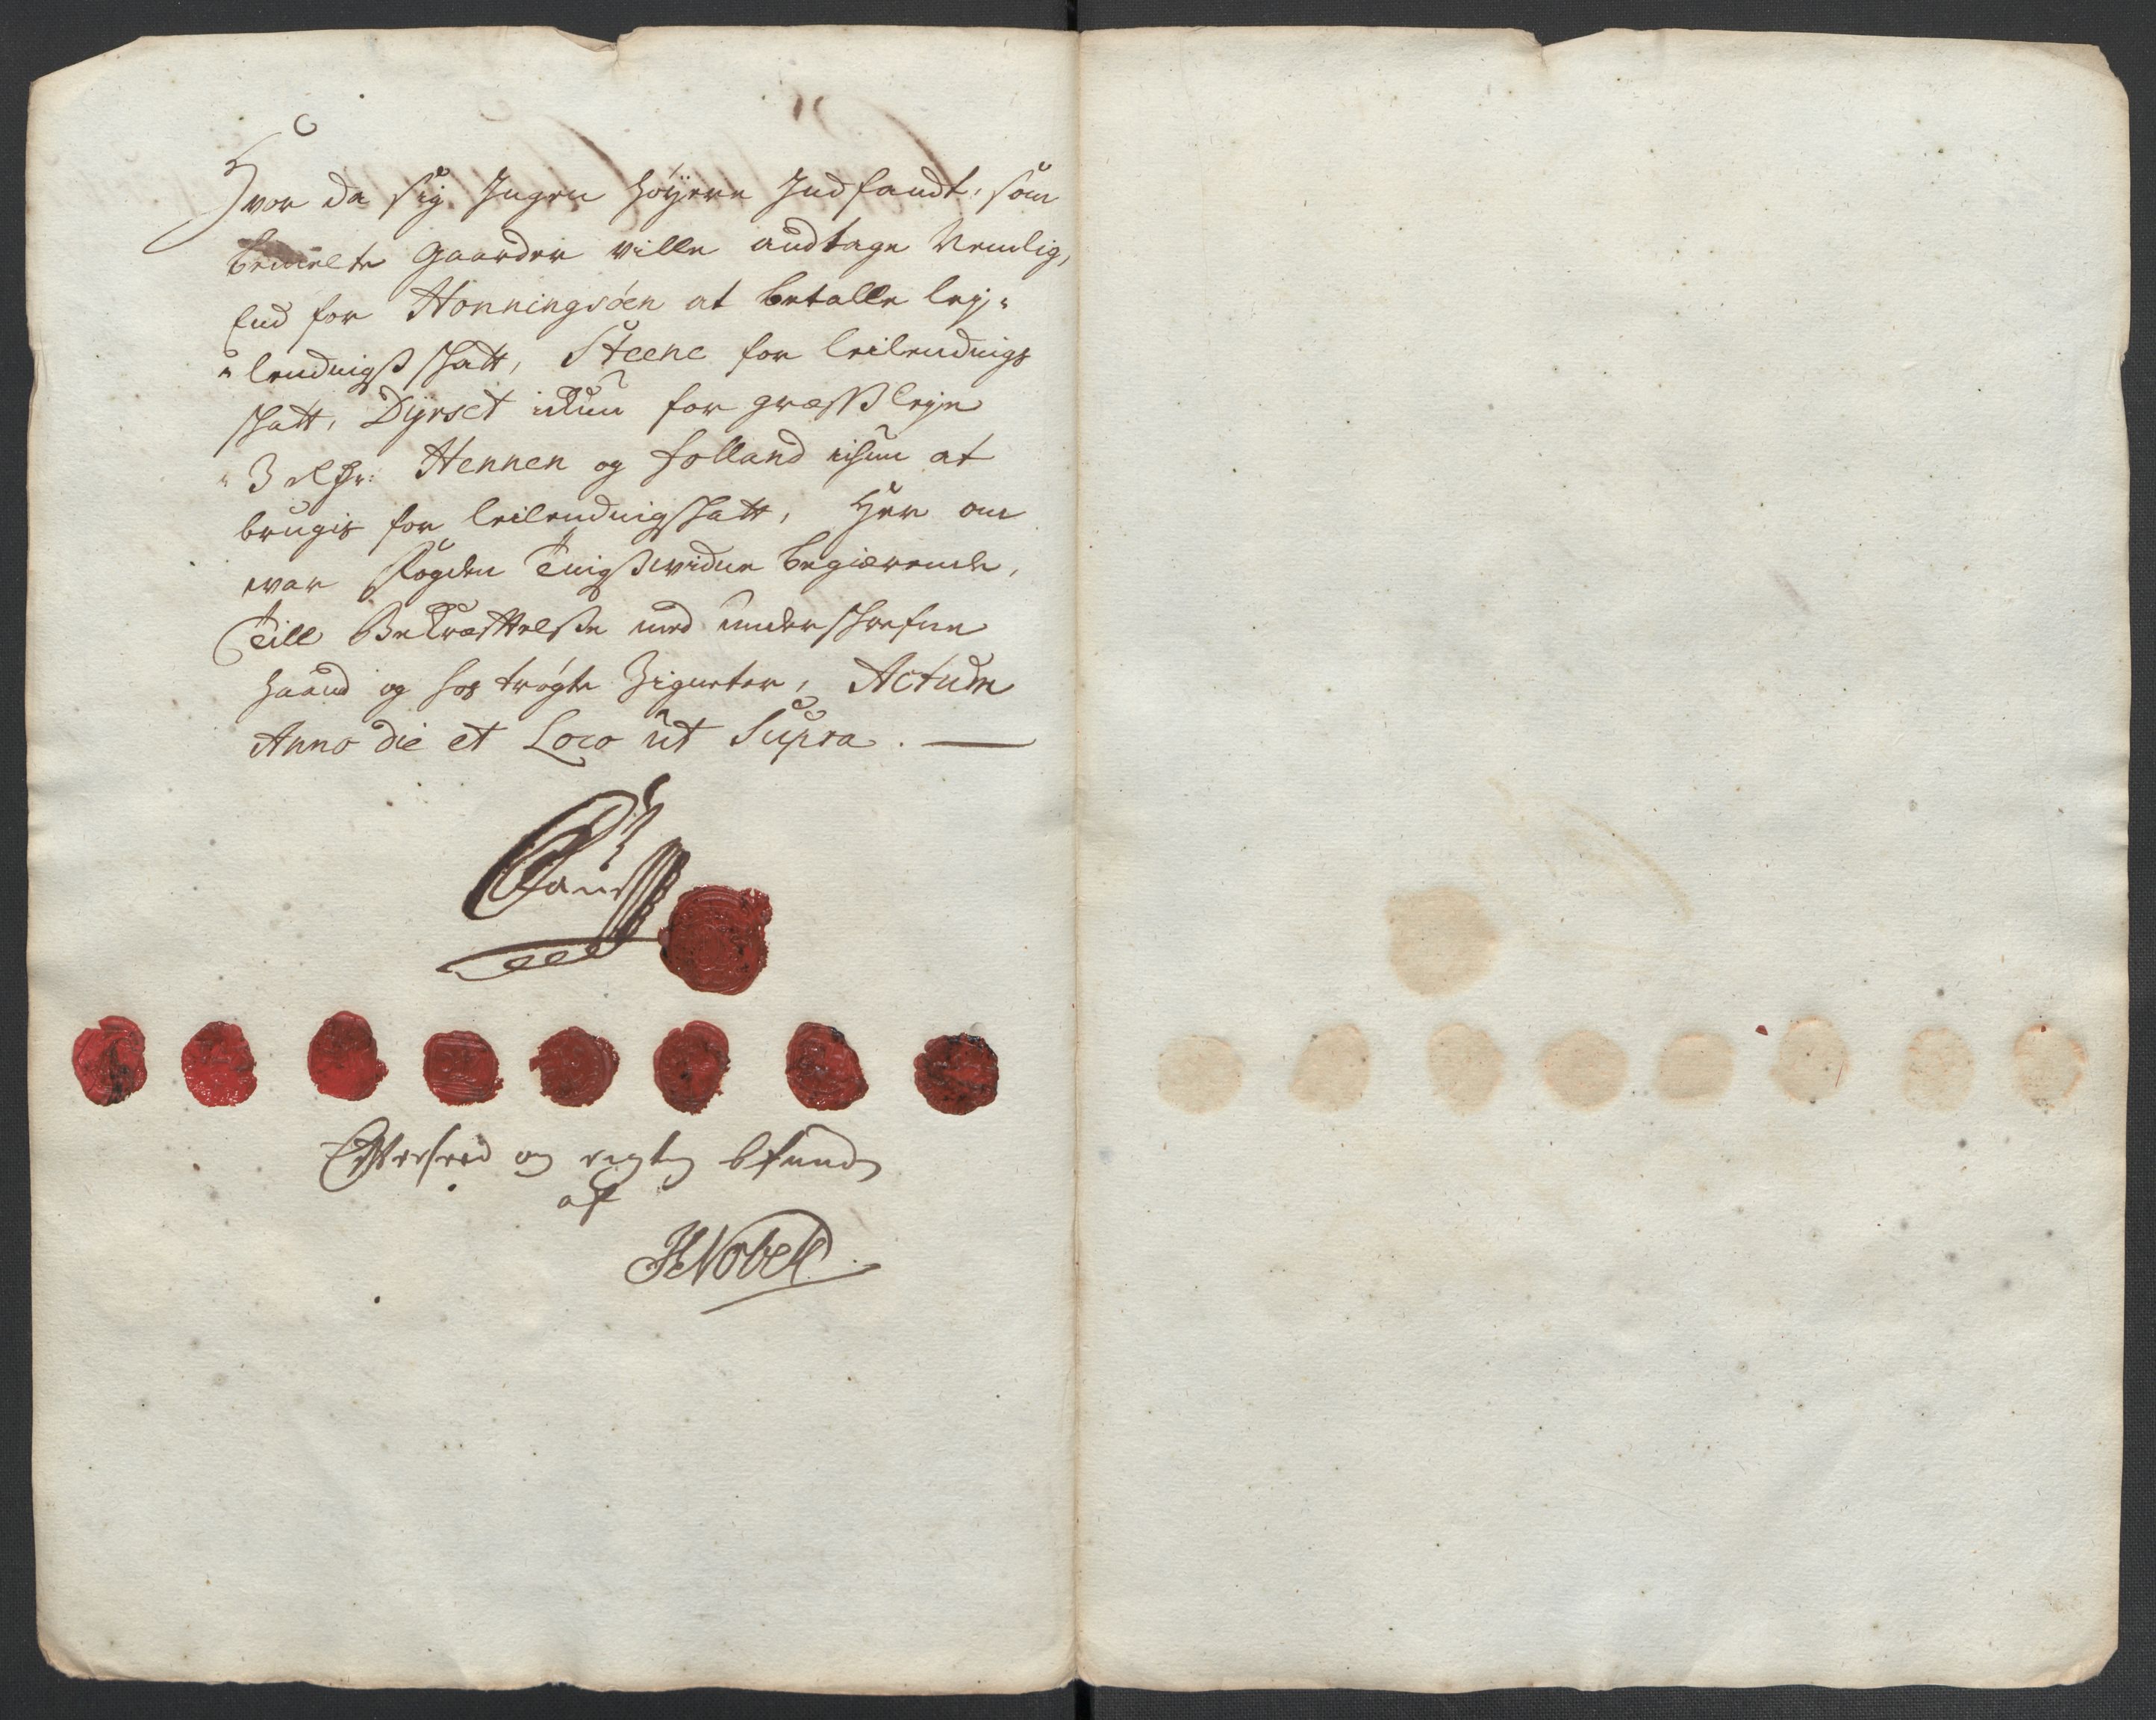 Hvor da sig Ingen høyere Indfandt, som
bemelte Gaarder ville andtage Nemlig,
End for Honningsøen at betalle ley-
lendnigß skatt, Steene for leilendnigs
skatt, Dyrset ickun for græßleye
3 Rdr: Hennen og Folland ichun at
brugis for leilendnigskatt, Her om
war Fogden Tingßwidne begiærende,
Till Bekræfftelße med underskrefne
haand og hos trøgte Zigneter, Actum
Anno die et Loco ut Supra.
Efterseed og rigtig befunden
af
HNobell